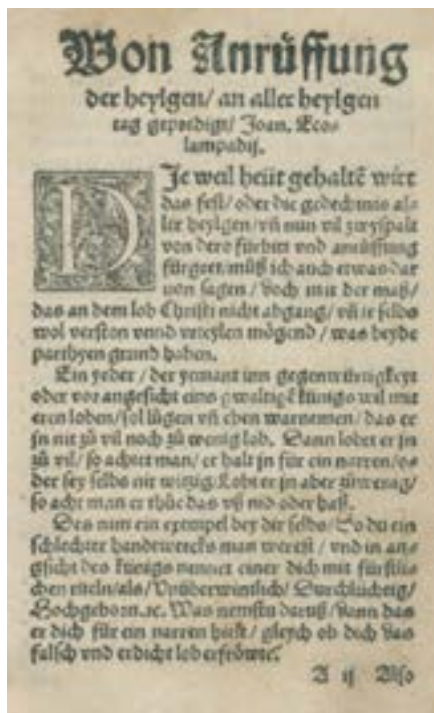 Von Anrüffung
der heylgen/ an aller heylgen
tag geprediget/ Joan. Ecos
lampadij.
DJe weil heüt gehaltē wirt
das fest/ oder die gedechtnis al-
ler heylgen/ vñ nun vil zwyspalt
von dero fürbitt vnd anrüffung
fürgeet/ müß ich auch etwas dar
uon sagen/ doch mit der maß/
das an dem lob Christi nicht abgang/ vñ ir selbs
wol verston vnnd vrteylen mögend/ was beyde
parthyen grund haben.
Ein yeder/ der yemant inn gegenwürtigkeyt
oder vor angesicht eins gwaltigē künigs wil mit
eren loben/ sol lůgen vñ eben warnemen/ das er
jn nit zů vil noch zů wenig lob. Dann lobet er jn
zů vil/ so achtet man/ er halt jn für ein narren/ o
der sey selbs nit witzig. Lobt er jn aber zůwenig/
so acht man er thüe das vß nid oder haß.
Des nim ein exempel bey dir selbs/ So du ein
schlechter handtwercks man werest/ vnd in an-
gsicht des künigs nennet einer dich mit fürstli-
chen titeln/ als/ Vnüberwintlich/ Durchlüchtig/
Hochgeborn. ꝛc. Was nemstu daruß/ dann das
er dich für ein narren hielt/ gleych ob dich das
falsch vnd erdicht lob erfröwte.
A ij Also